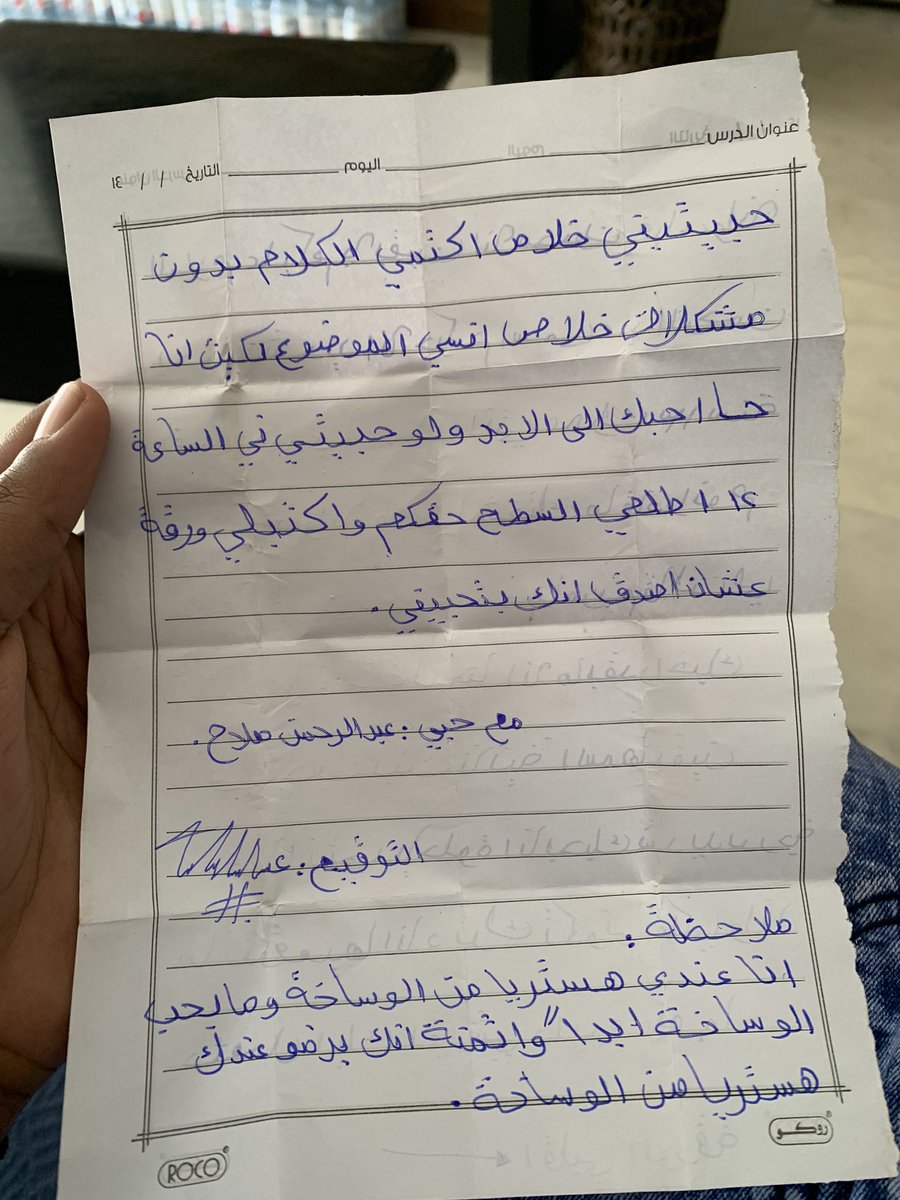 عنوان الدرس اليوم التاريخ / / ١٤
حبيثبتي خلاص اكتمي الكلام بدون
مشكلات خلاص انسي الموضوع لكن انا
حا احبك الى الابد ولو حبيثي ني الساعة
١٢ اطلعي السطح حقكم واكتبلي ورقة
عشان اصدق انك بتحبيني.
مع حبي: عبدالرحمن صلاح.
التوقيع:
ملاحظة:
انا عندي هستريا من الوساخة ومايحب
الوساخة ابداً واتمنة انك برضو عندك
هستريا من الوساخة.
ROCO روكو